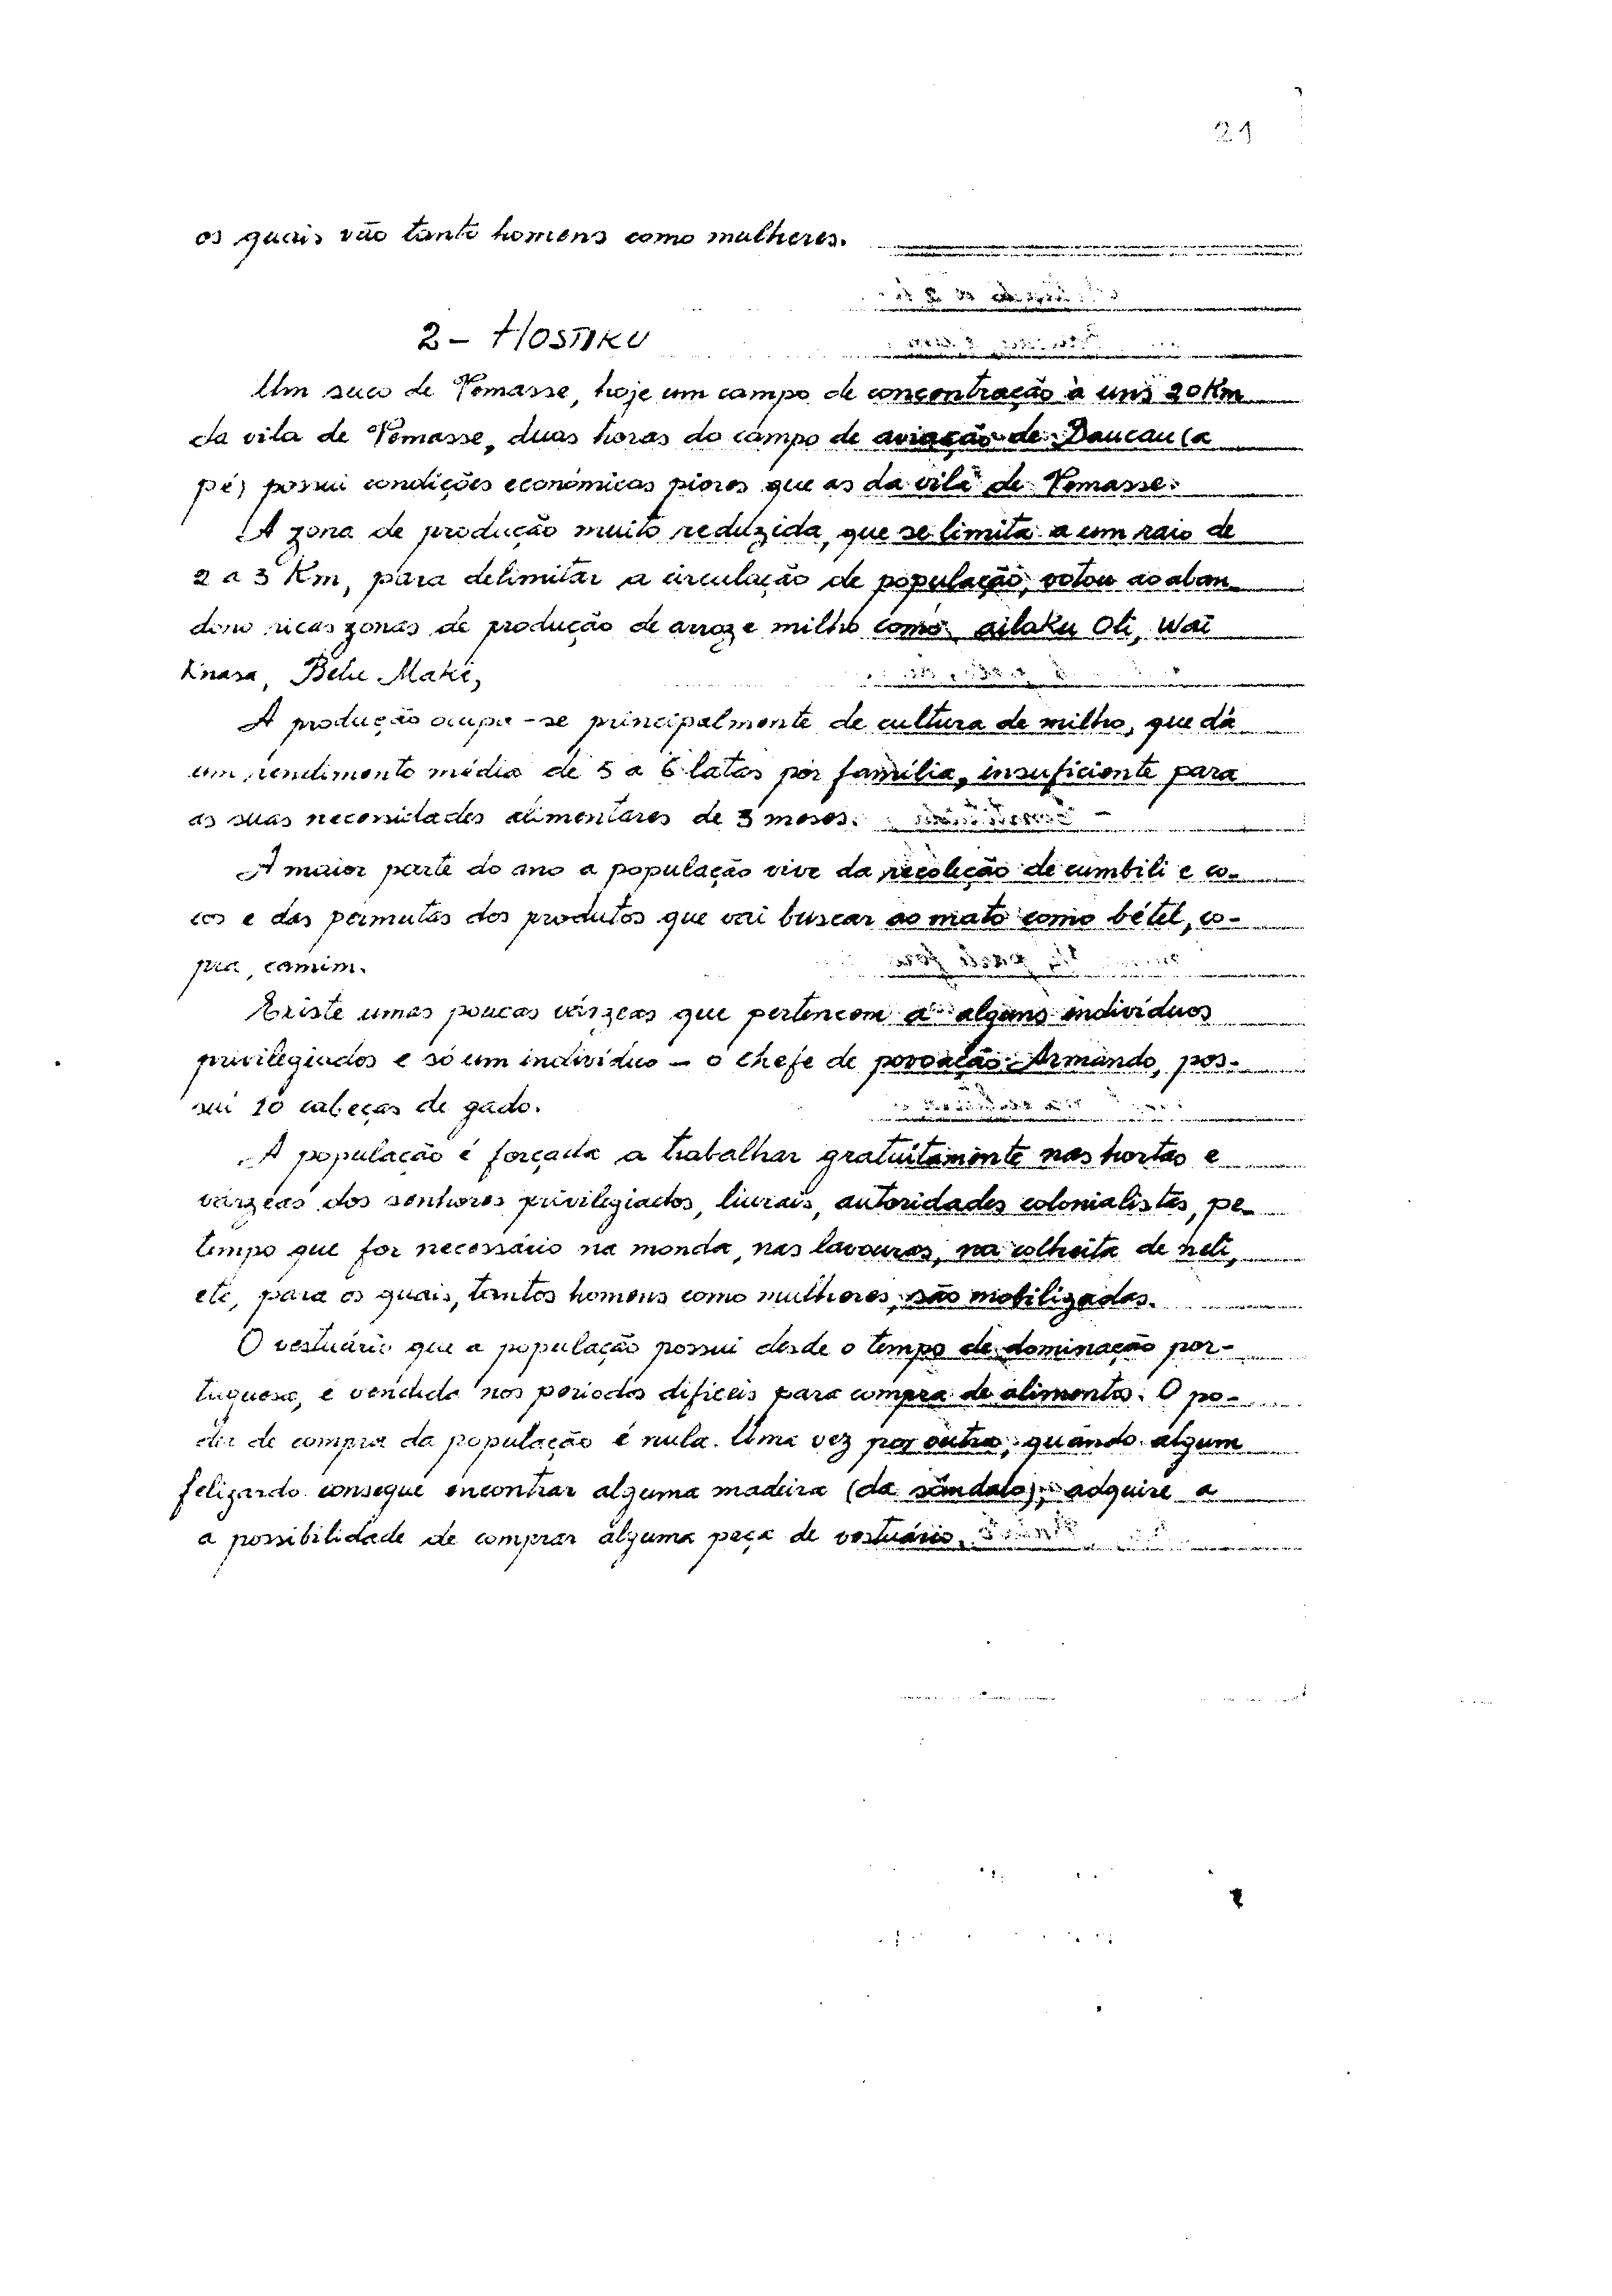 21
os quais vão tanto homens como mulheres.
2 - HOSTIKU
Um suco de Vemasse, hoje um campo de concentração à uns 20 Km
da vila de Vemasse, duas horas do campo de aviação de Baucau (a
pé) possui condições económicas piores que as da vila de Vemasse.
A zona de produção muito reduzida, que se limita a um raio de
2 a 3 Km, para delimitar a circulação de população, votou ao aban-
dono ricas zonas de produção de arroz e milho como, ailaku Oli, Wai
Knasa, Behe Maki,
A produção ocupa-se principalmente de cultura de milho, que dá
um rendimento média de 5 a 6 latas por família, insuficiente para
as suas necessidades alimentares de 3 meses.
A maior parte do ano a população vive da recoleção de cumbili e co-
cos e das permutas dos produtos que vai buscar ao mato como bétel, co-
pra, camim.
Existe umas poucas várzeas que pertencem a alguns indivíduos
privilegiados e só um indivíduo - o chefe de povoação Armando, pos-
sui 10 cabeças de gado.
A população é forçada a trabalhar gratuitamente nas hortas e
várzeas dos senhores privilegiados, liurais, autoridades colonialistas, pe-
tempo que for necessário na monda, nas lavouras, na colheita de neli,
etc, para os quais, tantos homens como mulheres, são mobilizadas.
O vestuário que a população possui desde o tempo de dominação por-
tuguesa, é vendida nos períodos difíceis para compra de alimentos. O po-
der de compra da população é nula. Uma vez por outra, quando algum
felizardo consegue encontrar alguma madeira (da sândalo), adquire a
a possibilidade de comprar alguma peça de vestuário.